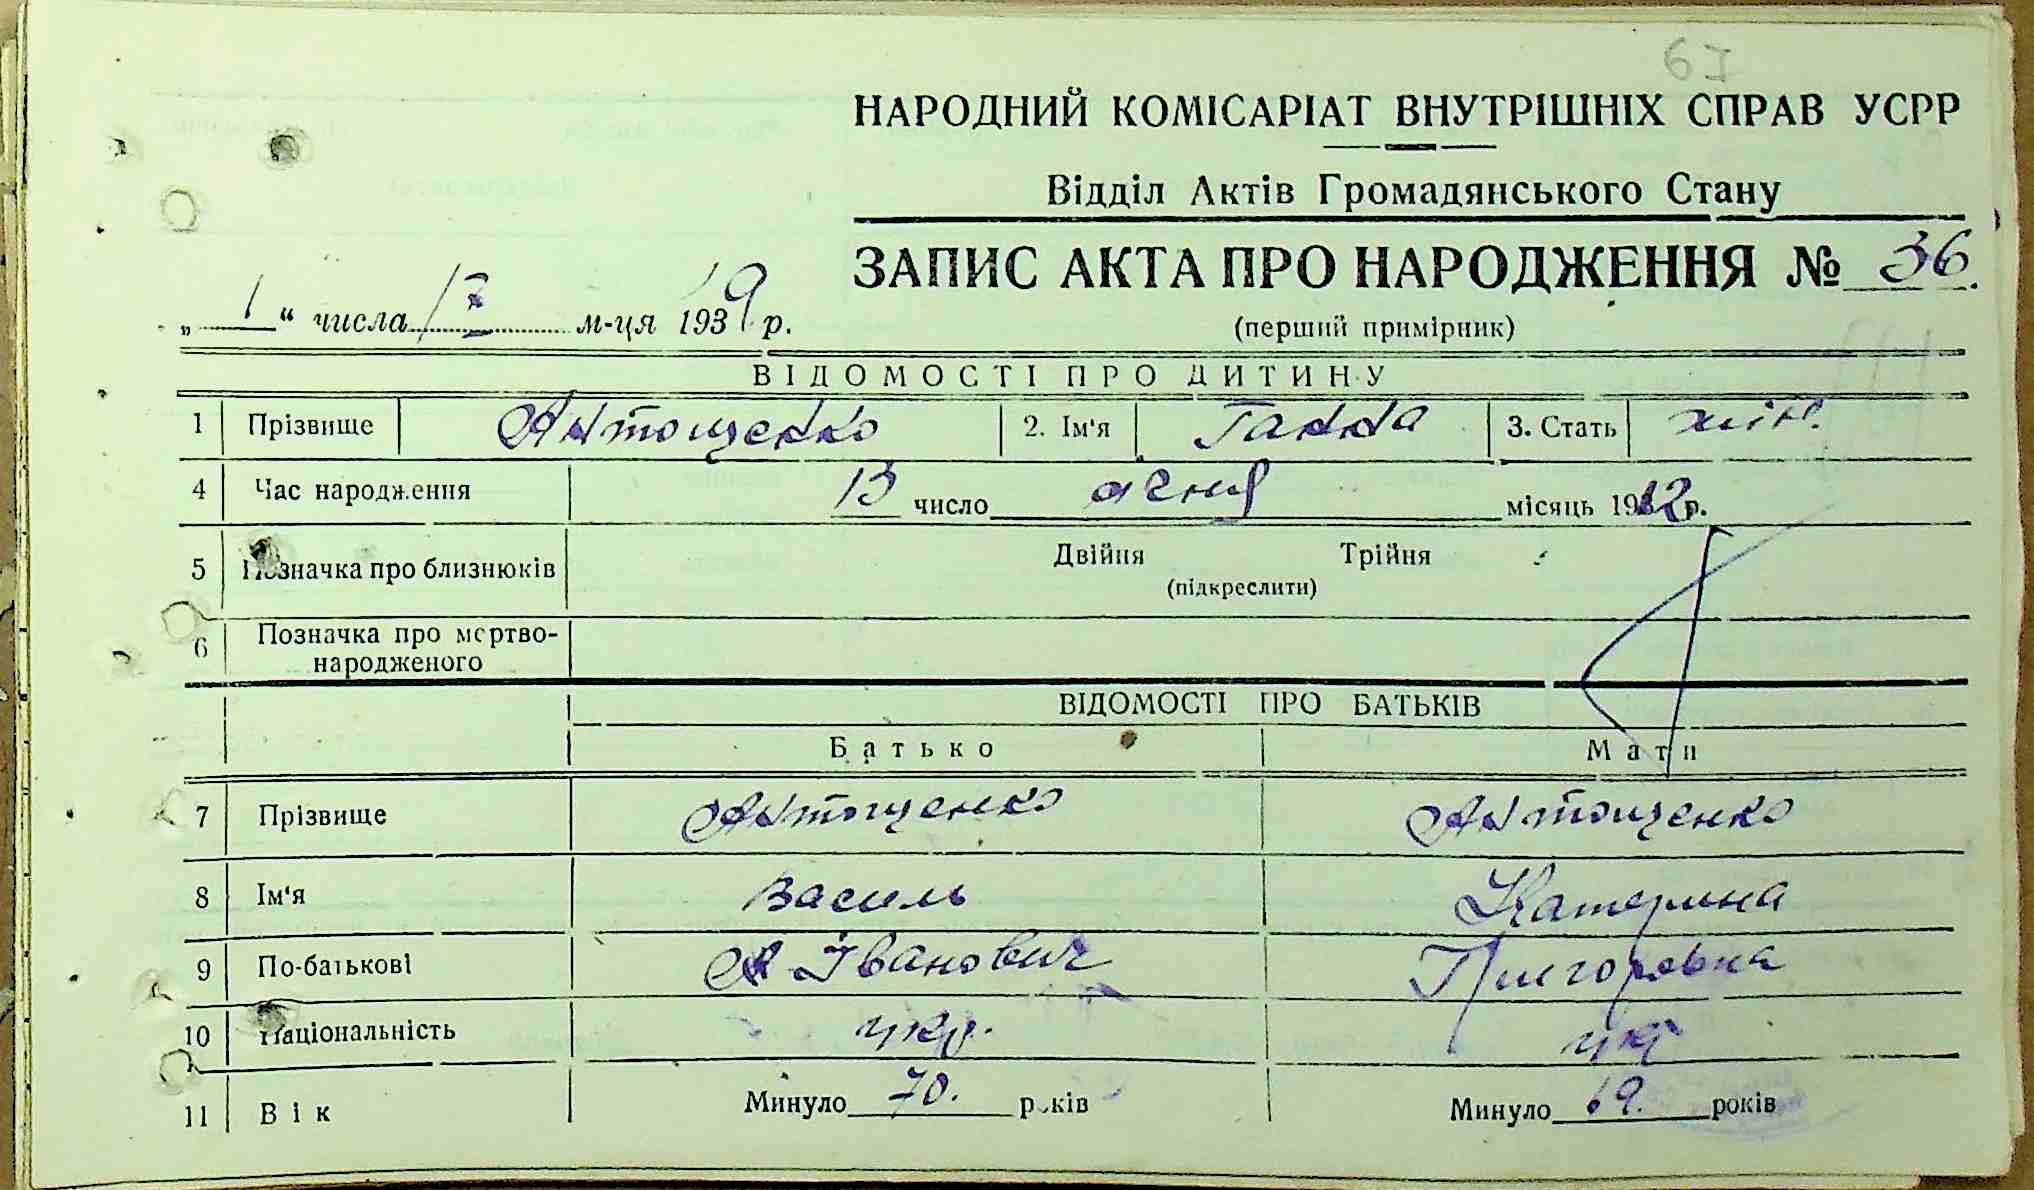 67
НАРОДНИЙ КОМІСАРІАТ ВНУТРІШНІХ СПРАВ УСРР
Відділ Актів Громадянського Стану
ЗАПИС АКТА ПРО НАРОДЖЕННЯ № 36.
„ 1 “ числа м-ця 1939 р.
(перший примірник)
ВІДОМОСТІ ПРО ДИТИНУ
1 Прізвище Антощенко 2. Ім'я Ганна 3. Стать жін.
4 Час народження 13 число січня місяць 1912 р.
5 Позначка про близнюків Двійня Трійня
(підкреслити)
6 Позначка про мертво-
народженого
ВІДОМОСТІ ПРО БАТЬКІВ
Батько Мати
7 Прізвище Антощенко Антощенко
8 Ім'я Василь Катерина
9 По-батькові Іванович Григоревна
10 Національність укр. укр
11 Вік Минуло 70. років Минуло 69. років